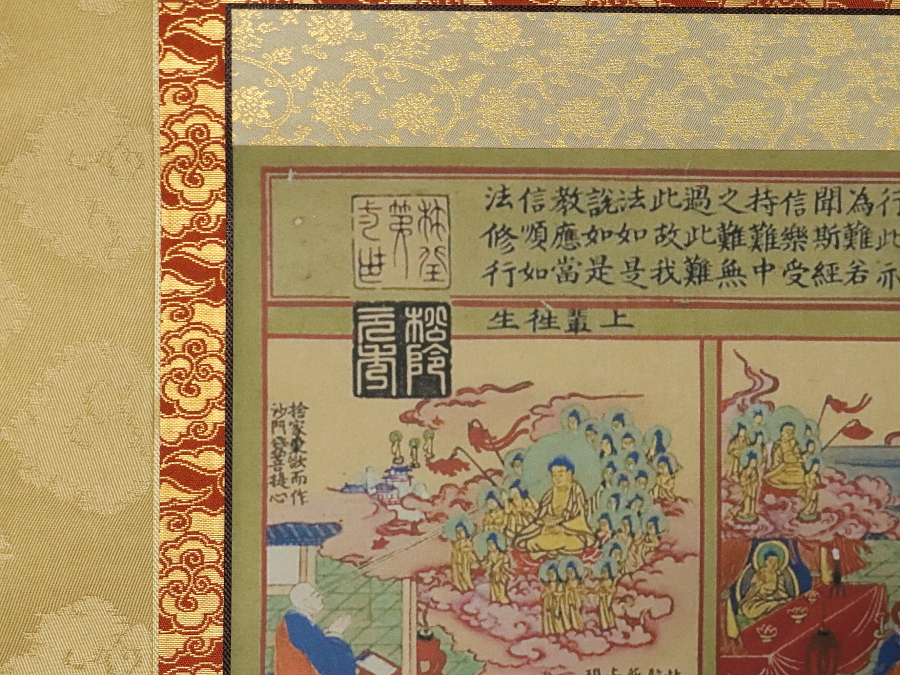 行此
為難若
聞斯經
信樂受
持難中
之難無
過此難
此故我
法如是
說如是
教應當
信順如
法修行
上輩徃生
松陰
捨家棄欲而作
沙門發菩提心